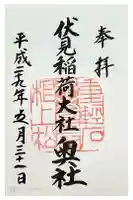 奉拝
伏見稲荷大社奥社
平成二十九年五月三十一日